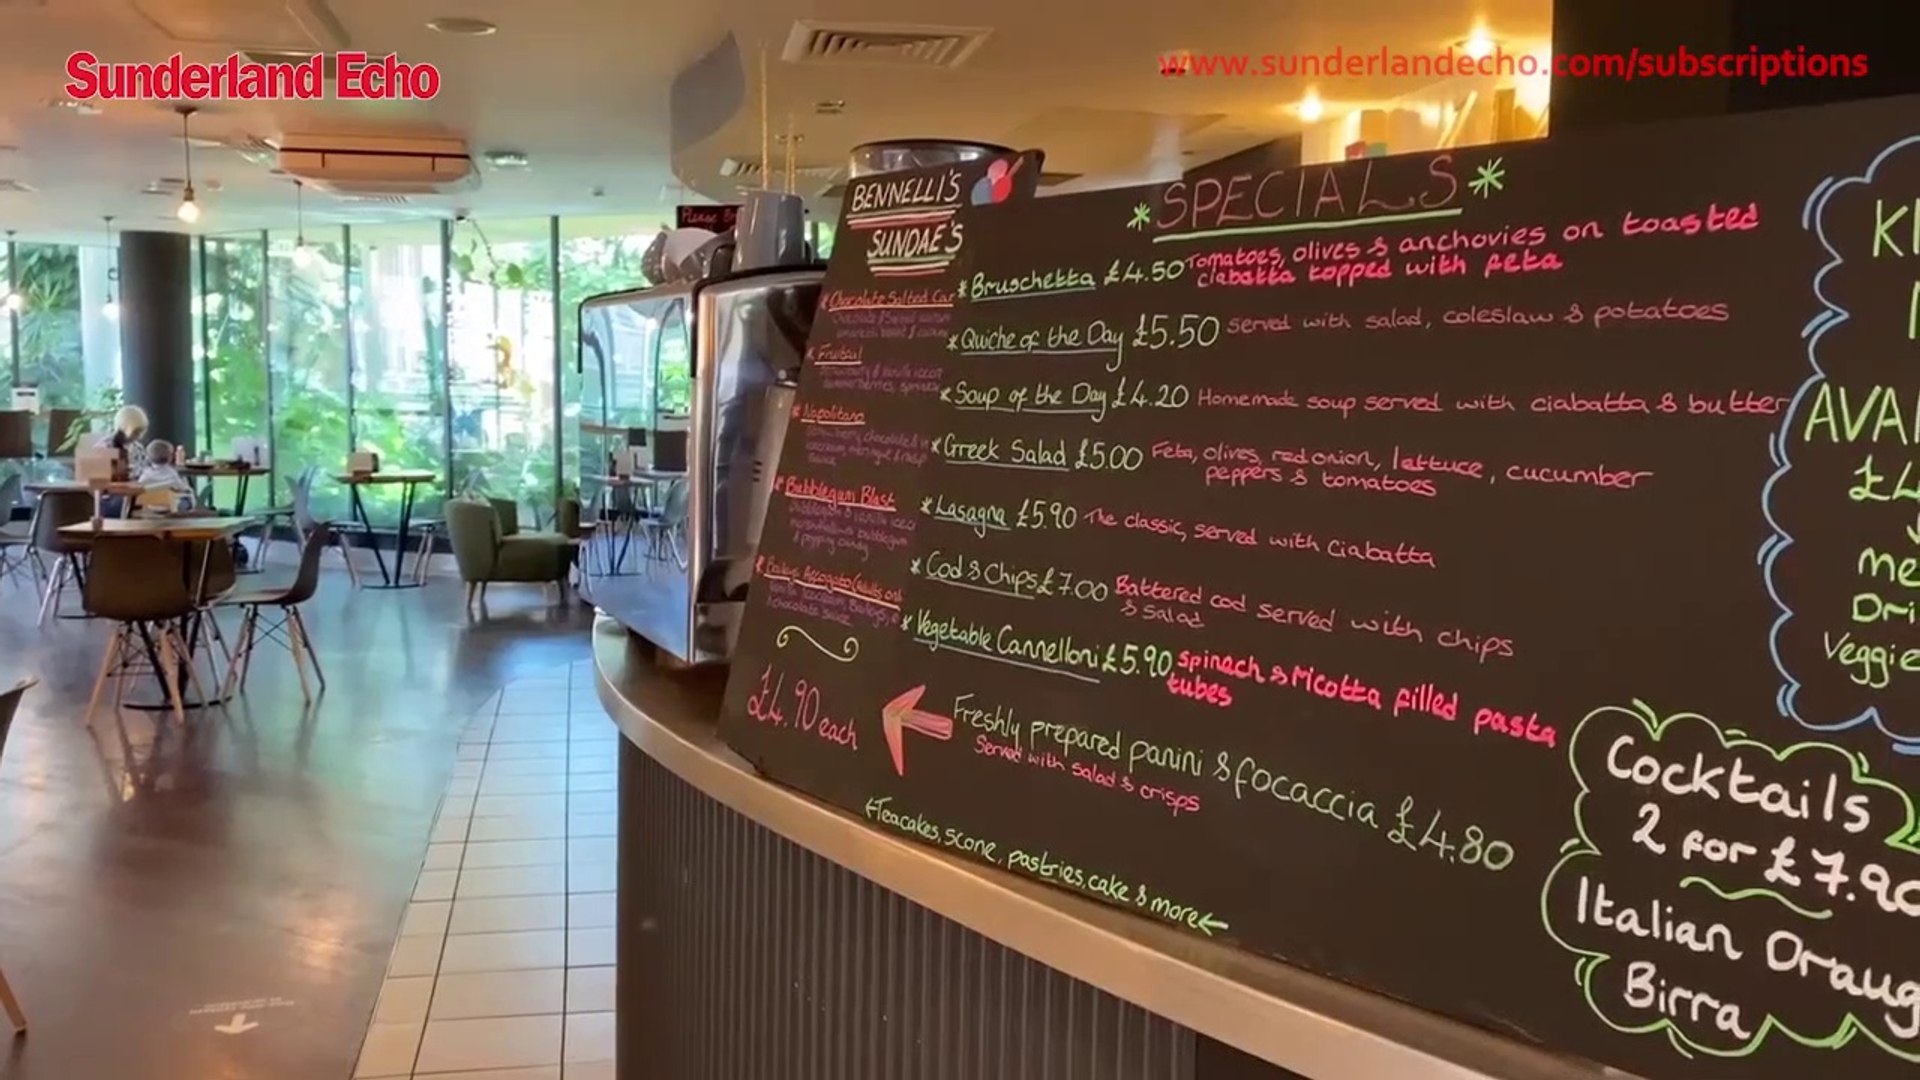 Sunderland Echo
www.sunderlandecho.com/subscriptions
Please
BENNELLI'S
SUNDAE'S
* Chocolate Salted Car
* Fruitail
* Napolitana
* Bubblegum Blast
£4.90 each
* SPECIALS *
* Bruschetta £4.50 Tomatoes, olives & anchovies on toasted
ciabatta topped with feta
* Quiche of the Day £5.50 served with salad, coleslaw & potatoes
* Soup of the Day £4.20 Homemade soup served with ciabatta & butter
* Greek Salad £5.00 Feta, olives, red onion, lettuce, cucumber
peppers & tomatoes
* Lasagna £5.90 The classic, served with Ciabatta
* Cod & Chips £7.00 Battered cod served with chips
& Salad
* Vegetable Cannelloni £5.90 Spinach & Ricotta filled pasta
tubes
Freshly prepared panini & focaccia £4.80
Served with salad & crisps
←Teacakes, scone, pastries, cake & more←
KI
AVAI
£4
me
Dri
Veggie
Cocktails
2 for £7.90
Italian Draug
Birra